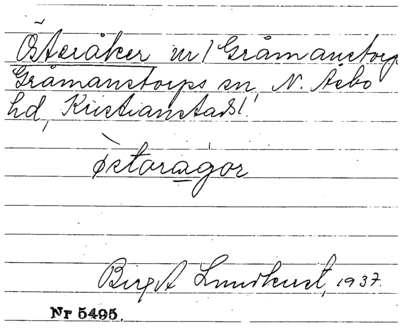 Österåker nr 1 Gråmanstorp
Gråmanstorps sn, N. Åsbo
hd, Kristianstads l.
østoragor
Birgit Lundkvist, 1937.
Nr 5495.